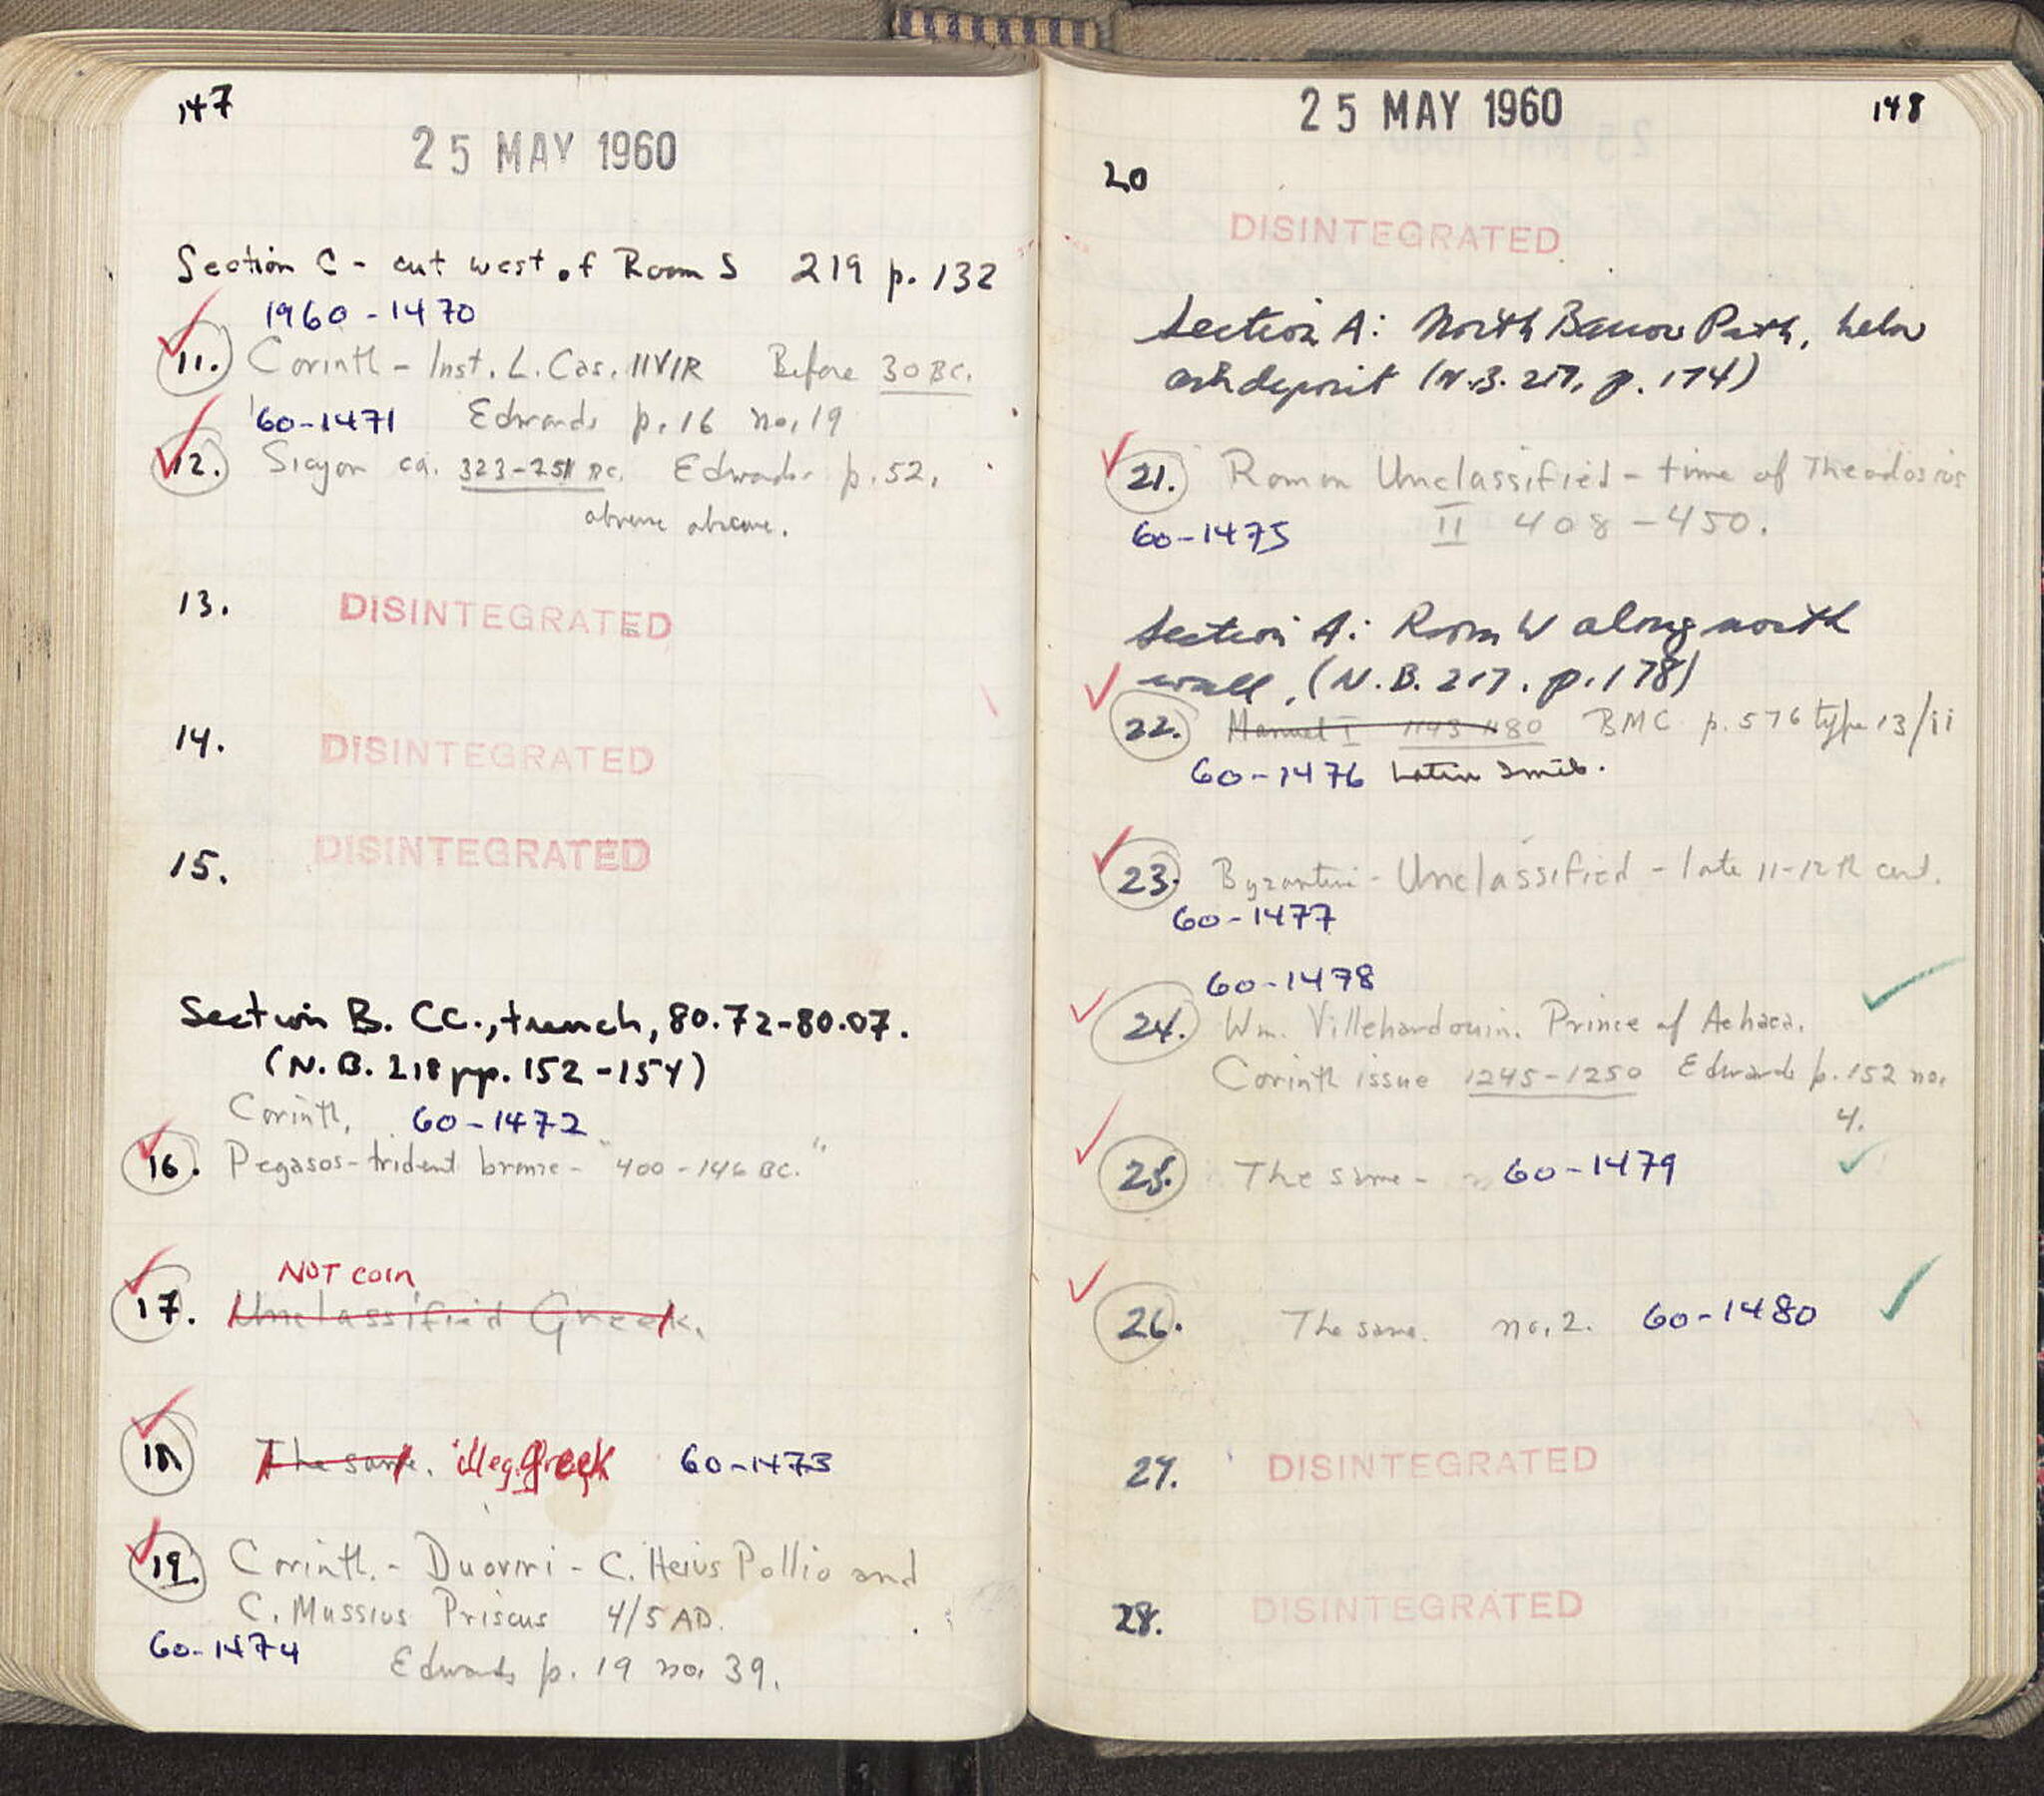 147
25 MAY 1960
Section C - cut west of Room S 219 p. 132
1960-1470
11. Corinth - Inst. L. Cas. IIVIR Before 30 BC.
'60-1471 Edwards p. 16 no. 19
12. Sicyon ca. 323-251 BC. Edwards p. 52.
obverse obscure.
13. DISINTEGRATED
14. DISINTEGRATED
15. DISINTEGRATED
Section B. CC., trench, 80.72-80.07.
(N.B. 218 pp. 152-154)
Corinth, 60-1472
16. Pegasos-trident bronze - "400-146 BC."
NOT coin
17. Unclassified Greek.
18 The same. illeg. Greek 60-1473
19. Corinth. - Duoviri - C. Heius Pollio and
C. Mussius Priscus 4/5 AD.
60-1474
Edwards p. 19 no. 39.
25 MAY 1960
148
20
DISINTEGRATED
Section A: North Path, below
ash deposit (N.B. 217, p. 174)
21. Roman Unclassified - time of Theodosius
60-1475 II 408-450.
Section A: Room W along north
wall, (N.B. 217. p. 178)
22. Manuel I 1143-1180 BMC p. 576 type 13/ii
60-1476 Latin Imit.
23. Byzantine - Unclassified - late 11-12th cent.
60-1477
60-1478
24. Wm. Villehardouin. Prince of Achaea.
Corinth issue 1245-1250 Edwards p. 152 no.
4.
25. The same - 60-1479
26. The same. no. 2. 60-1480
27. DISINTEGRATED
28. DISINTEGRATED